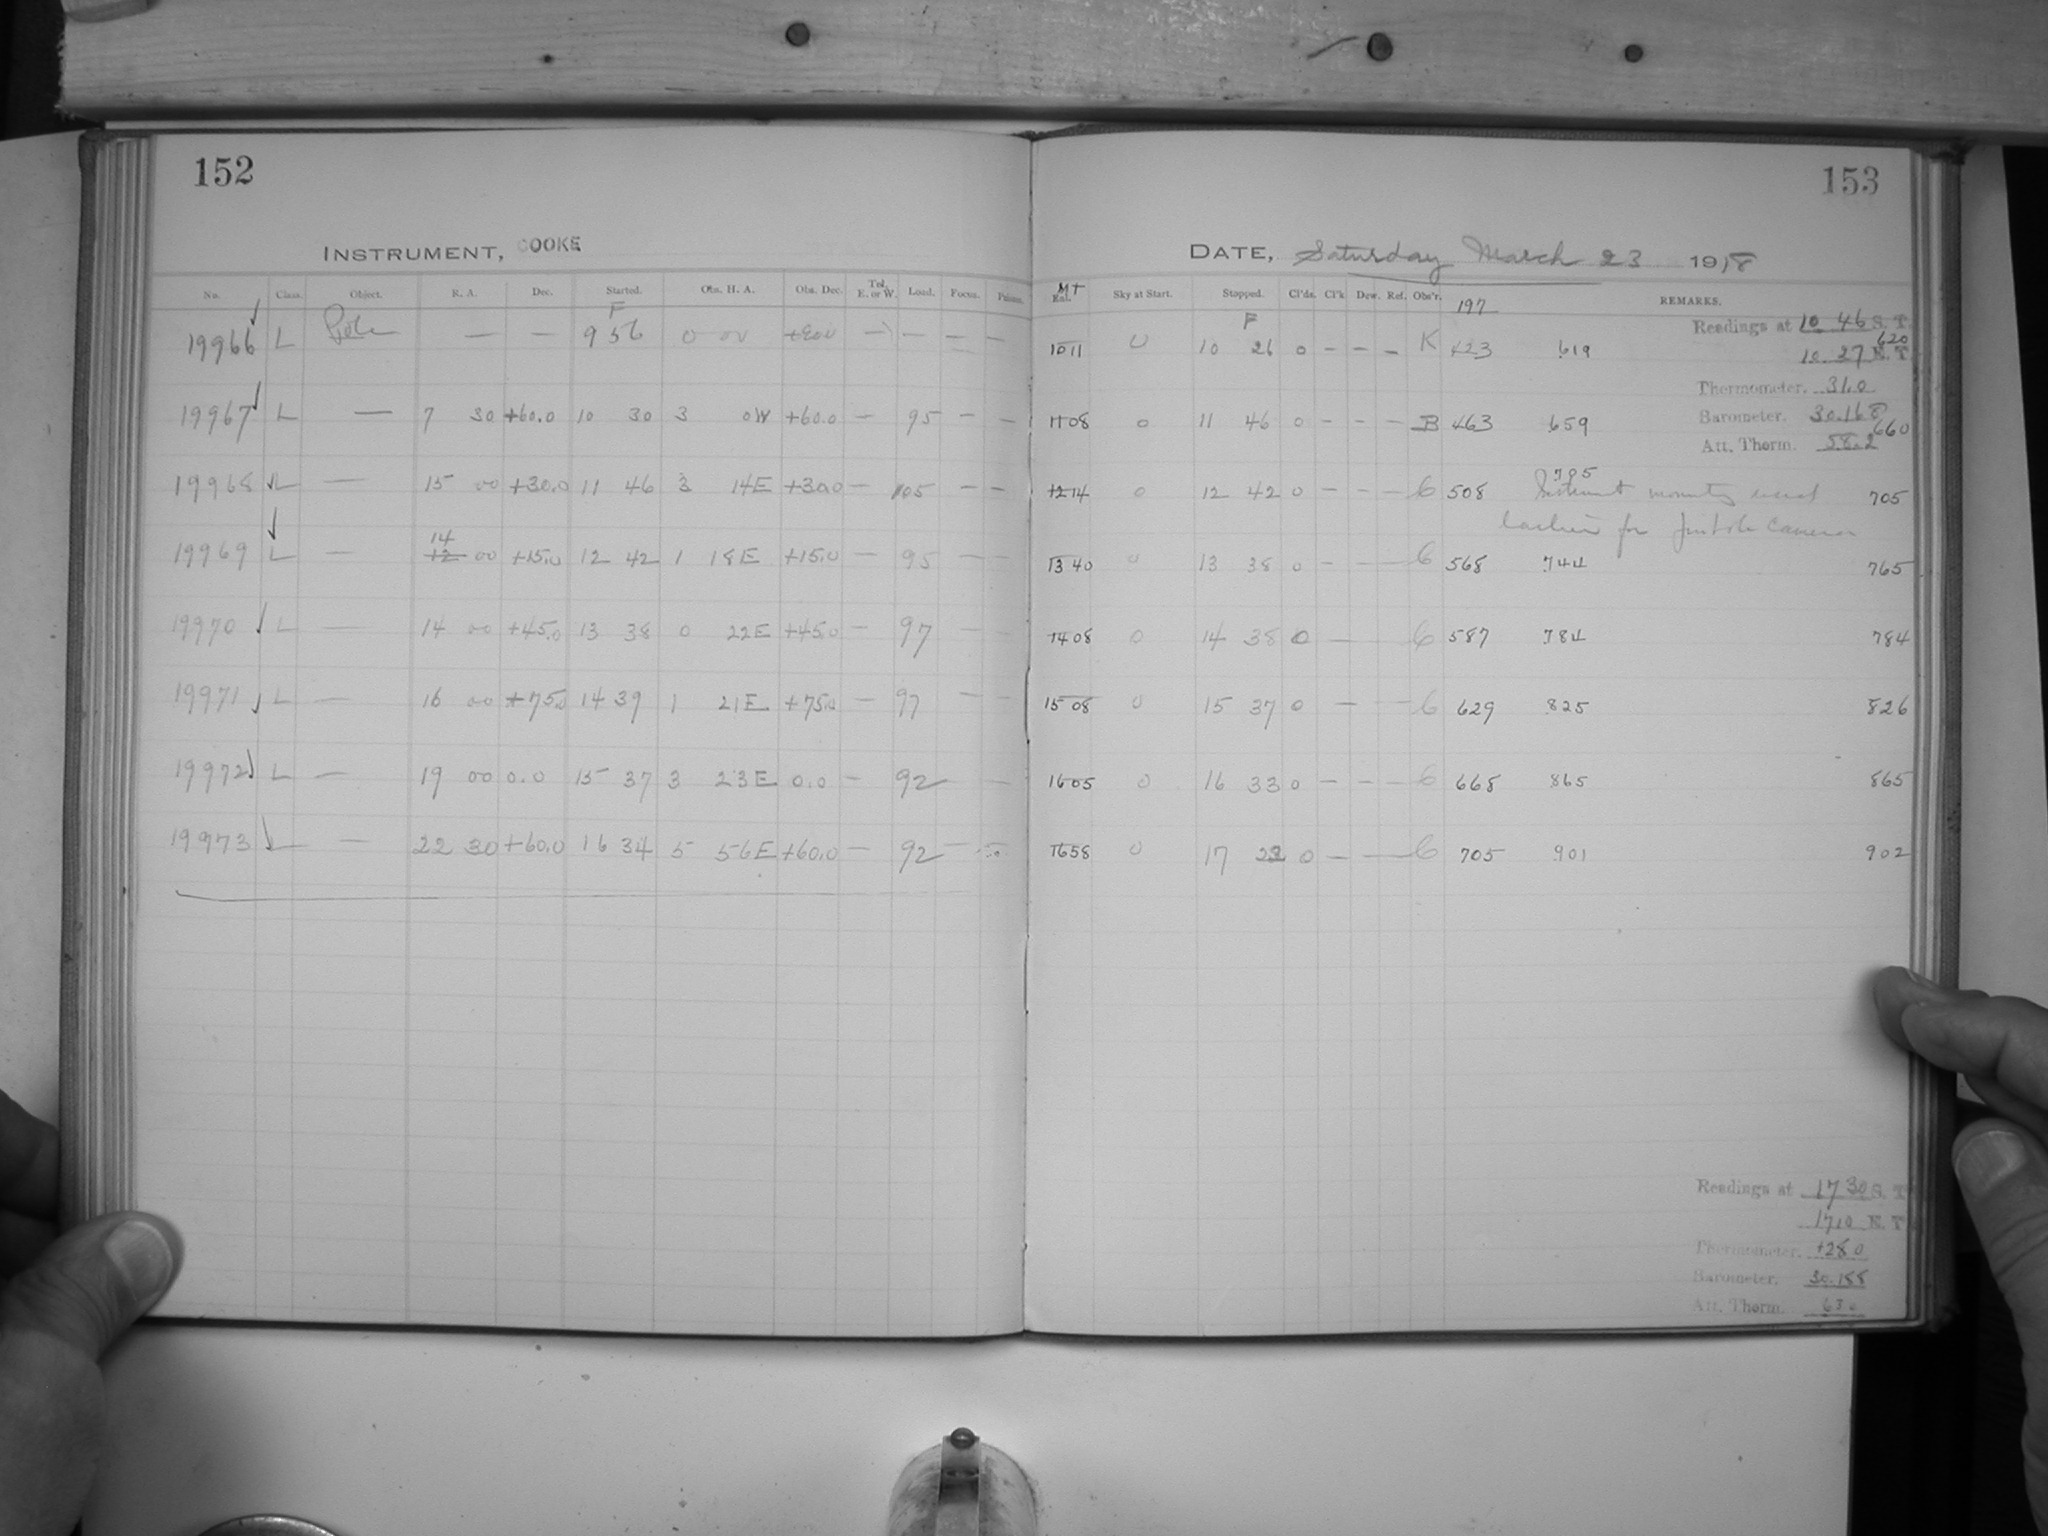 152
INSTRUMENT, COOKE
No. Class. Object. R. A. Dec. Started. Obs. H. A. Obs. Dec. Tel. E. or W. Load. Focus.
F
19966 L Pole — — 9 56 0 00 — — — —
19967 L — 7 30 +60.0 10 30 3 0W +60.0 — 95 — —
19968 L — 15 00 +30.0 11 46 3 14E +30.0 — 105 — —
14
19969 L — 12 00 +15.0 12 42 1 18E +15.0 — 95 — —
19970 L — 14 00 +45.0 13 38 0 22E +45.0 — 97 — —
19971 L — 16 00 +75.0 14 39 1 21E +75.0 — 97 — —
19972 L — 19 00 0.0 15 37 3 23E 0.0 — 92 —
19973 L — 22 30 +60.0 16 34 5 56E +60.0 — 92 —
153
DATE, Saturday March 23 1918
MT Sky at Start. Stopped. Cl'ds. Cl'k Dew. Ref. Obs'r. 197 REMARKS.
F
Readings at 10 46 S. T.
1011 0 10 26 0 — — — K 423 619 620
10 27 E. T.
Thermometer. 31.0
Barometer. 30.168
1108 0 11 46 0 — — — B 463 659 660
Att. Therm. 58.2
705
1214 0 12 42 0 — — — 6 508 Instrument used 705
for camera
1340 0 13 38 0 — — — 6 568 744 765
1408 0 14 38 0 — 6 587 784 784
1508 0 15 37 0 — — — 6 629 825 826
1605 0 16 33 0 — — — 6 668 865 865
1658 0 17 0 — — 6 705 901 902
Readings at 17 30 S. T.
17.0 E. T.
Thermometer. +28.0
Barometer. 30.188
Att. Therm. 63.0